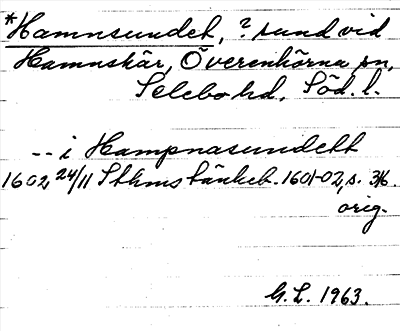 *Hamnsundet, ? sund vid
Hamnskär, Överenhörna sn,
Selebo hd, Söd. l.
-- i Hampnasundett
1602 24/11 Sthms tänkeb. 1601-02, s. 316.
orig.
G. L. 1963.